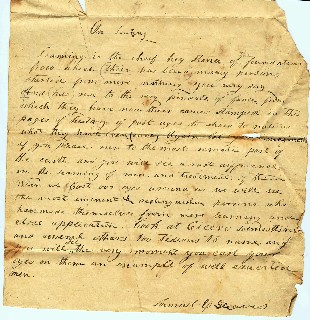 On
Learning is the chief key stone of foundation
from which their has been many persons
started from mere nothing you may say
And has run to the very pinnacle of fame from
which they have now their names stamped on the
pages of history of past ages who to nations
what they have
if you please men to the most remote part of
the earth and you will see a vast difference
in the learning of men and treatment of their
we cast our eyes around us we will see
the most eminent & distinguished persons who
have made themselves from mere learning and
close application. Look at Cicero Demosthenes
and several others too tedious to name and
you will see the very moment you cast your
eyes on them an example of well educated
men.
Samuel G.